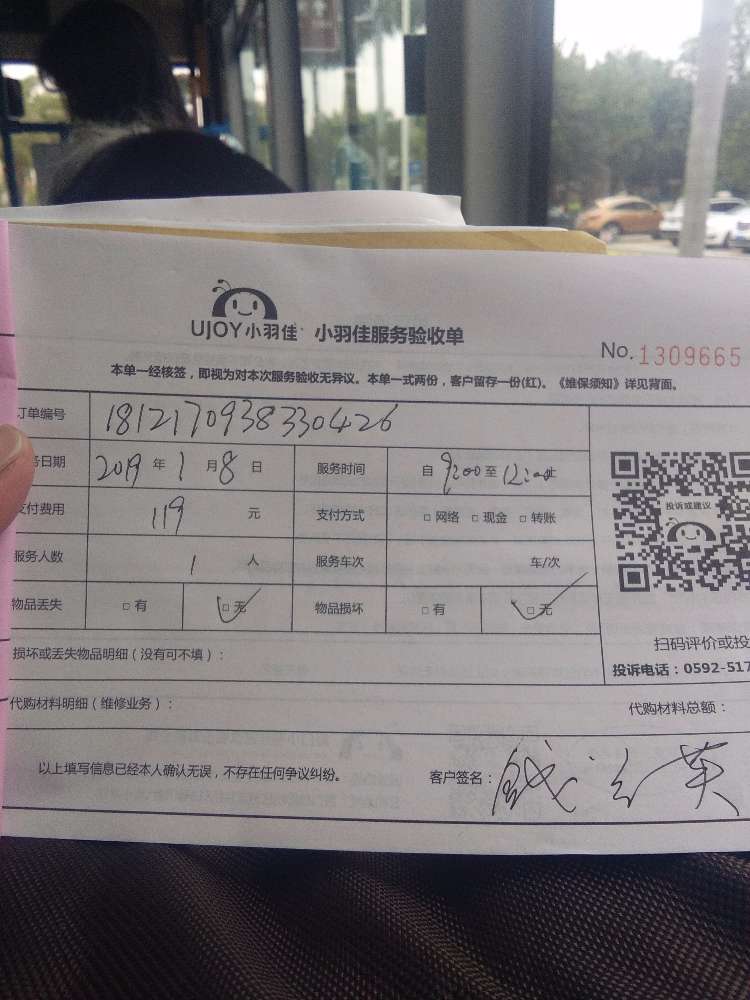 UJOY小羽佳 小羽佳服务验收单
No. 1309665
本单一经核签，即视为对本次服务验收无异议。本单一式两份，客户留存一份(红)。《维保须知》详见背面。
订单编号 1812170938330426
务日期 2019 年 1 月 8 日 服务时间 自 9:00 至 12:00
支付费用 119 元 支付方式 □ 网络 □ 现金 □ 转账
服务人数 1 人 服务车次 车/次
物品丢失 □ 有 □ 无 物品损坏 □ 有 □ 无
投诉或建议
扫码评价或投
投诉电话：0592-517
损坏或丢失物品明细（没有可不填）：
代购材料明细（维修业务）： 代购材料总额：
以上填写信息已经本人确认无误，不存在任何争议纠纷。 客户签名：